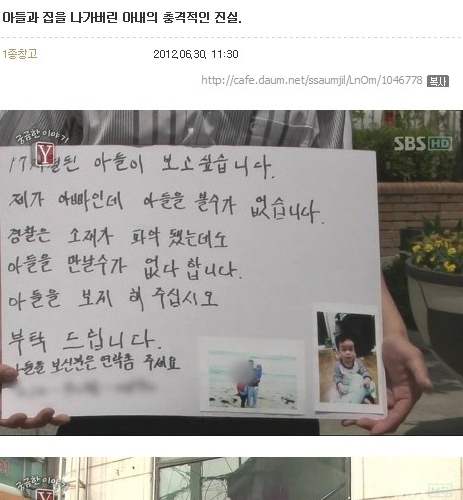 아들과 집을 나가버린 아내의 충격적인 진실.
1종창고 2012.06.30. 11:30
http://cafe.daum.net/ssaumjil/LnOm/1046778 복사
궁금한 이야기
Y
SBS HD
17개월된 아들이 보고싶습니다.
제가 아빠인데 아들을 볼수가 없습니다.
경찰은 소재가 파악 됐는데도
아들을 만날수가 없다 합니다.
아들을 보게 해 주십시오
부탁 드립니다.
아들을 보신분은 연락좀 주세요
궁금한 이야기